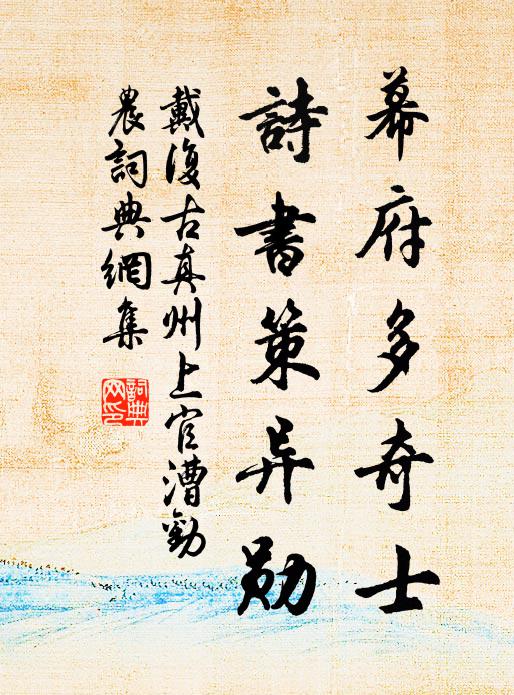 幕府多奇士
詩書策异勛
戴復古真州上官漕勸
農詞典網集
詞典網印